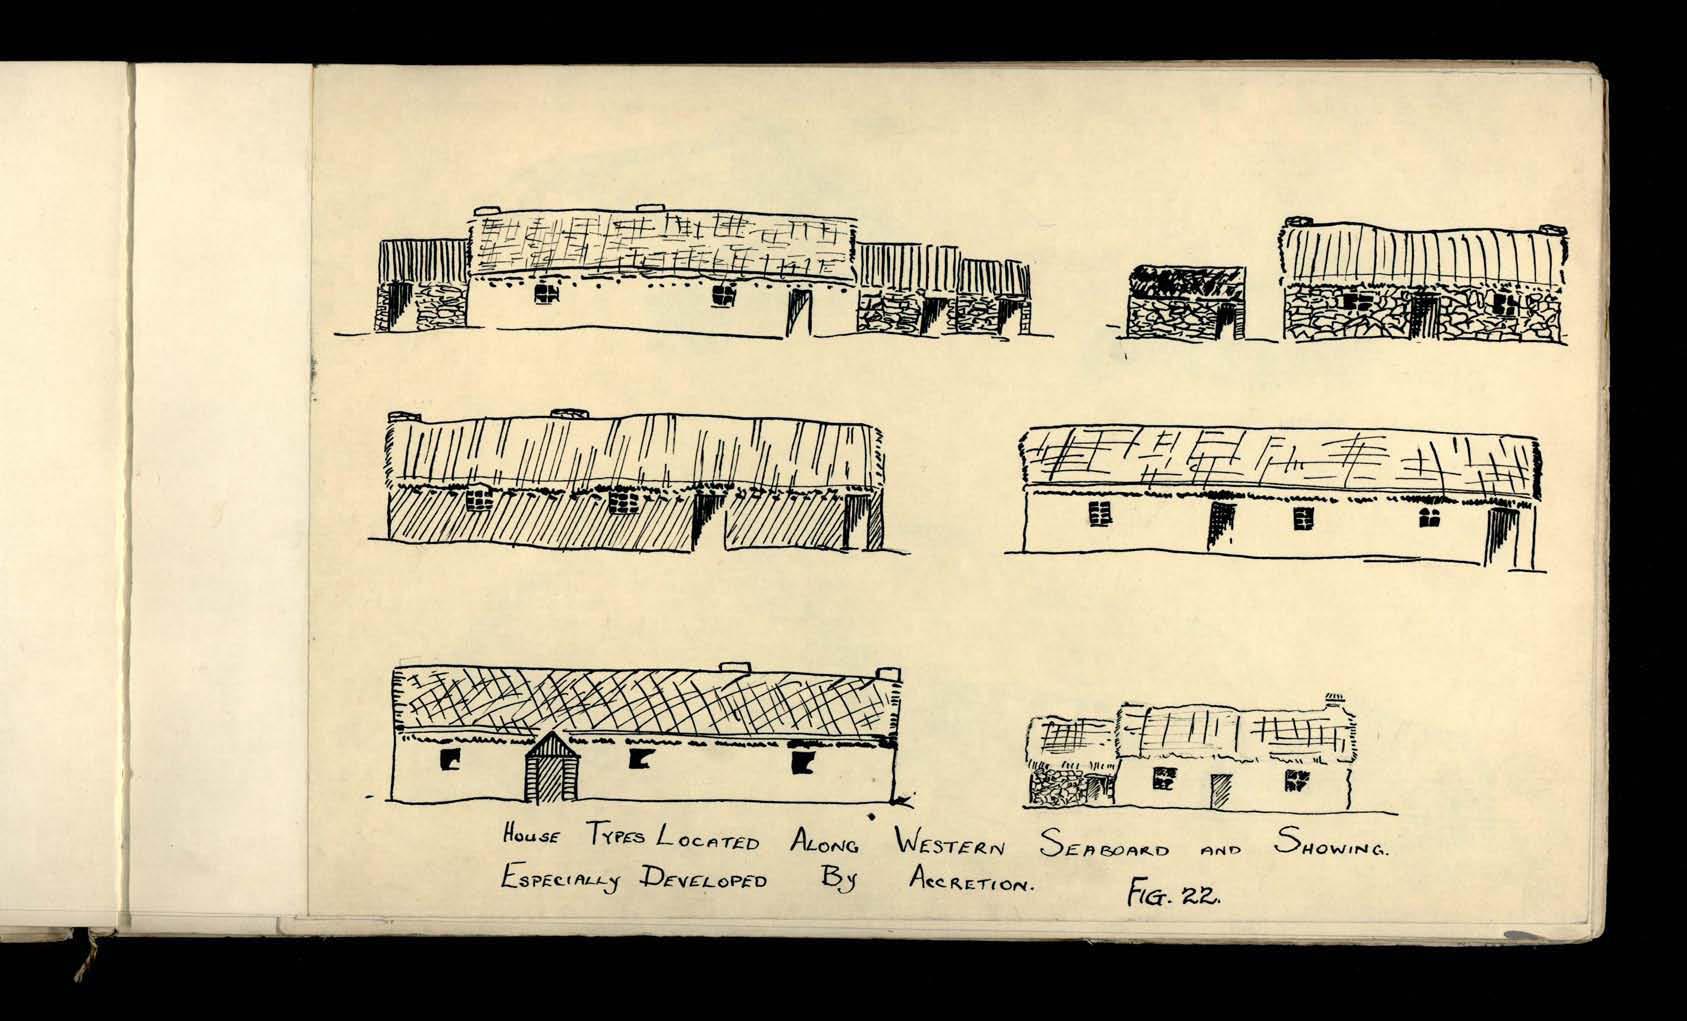 House Types Located Along Western Seaboard and Showing.
Especially Developed By Accretion.
Fig. 22.